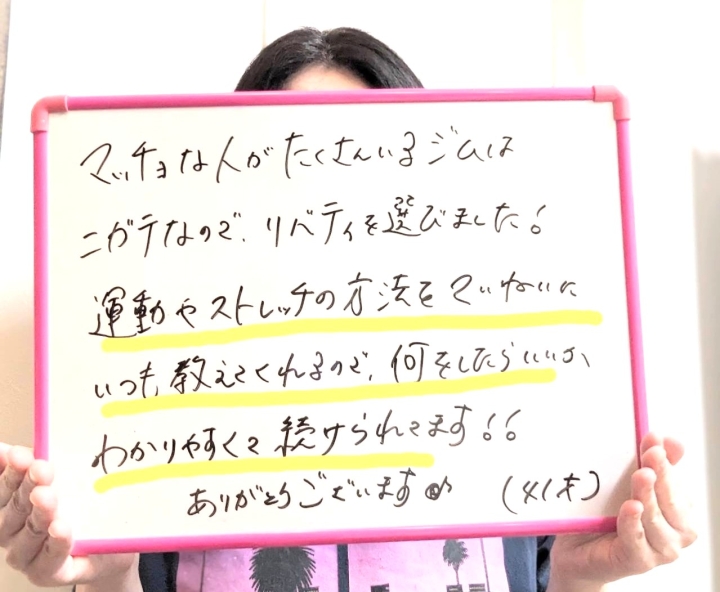 マッチョな人がたくさんいるジムは
ニガテなので、リベティを選びました！
運動やストレッチの方法をていねいに
いつも教えてくれるので、何をしたらいいか、
わかりやすくて続けられてます！！
ありがとうございます♪
(41才)